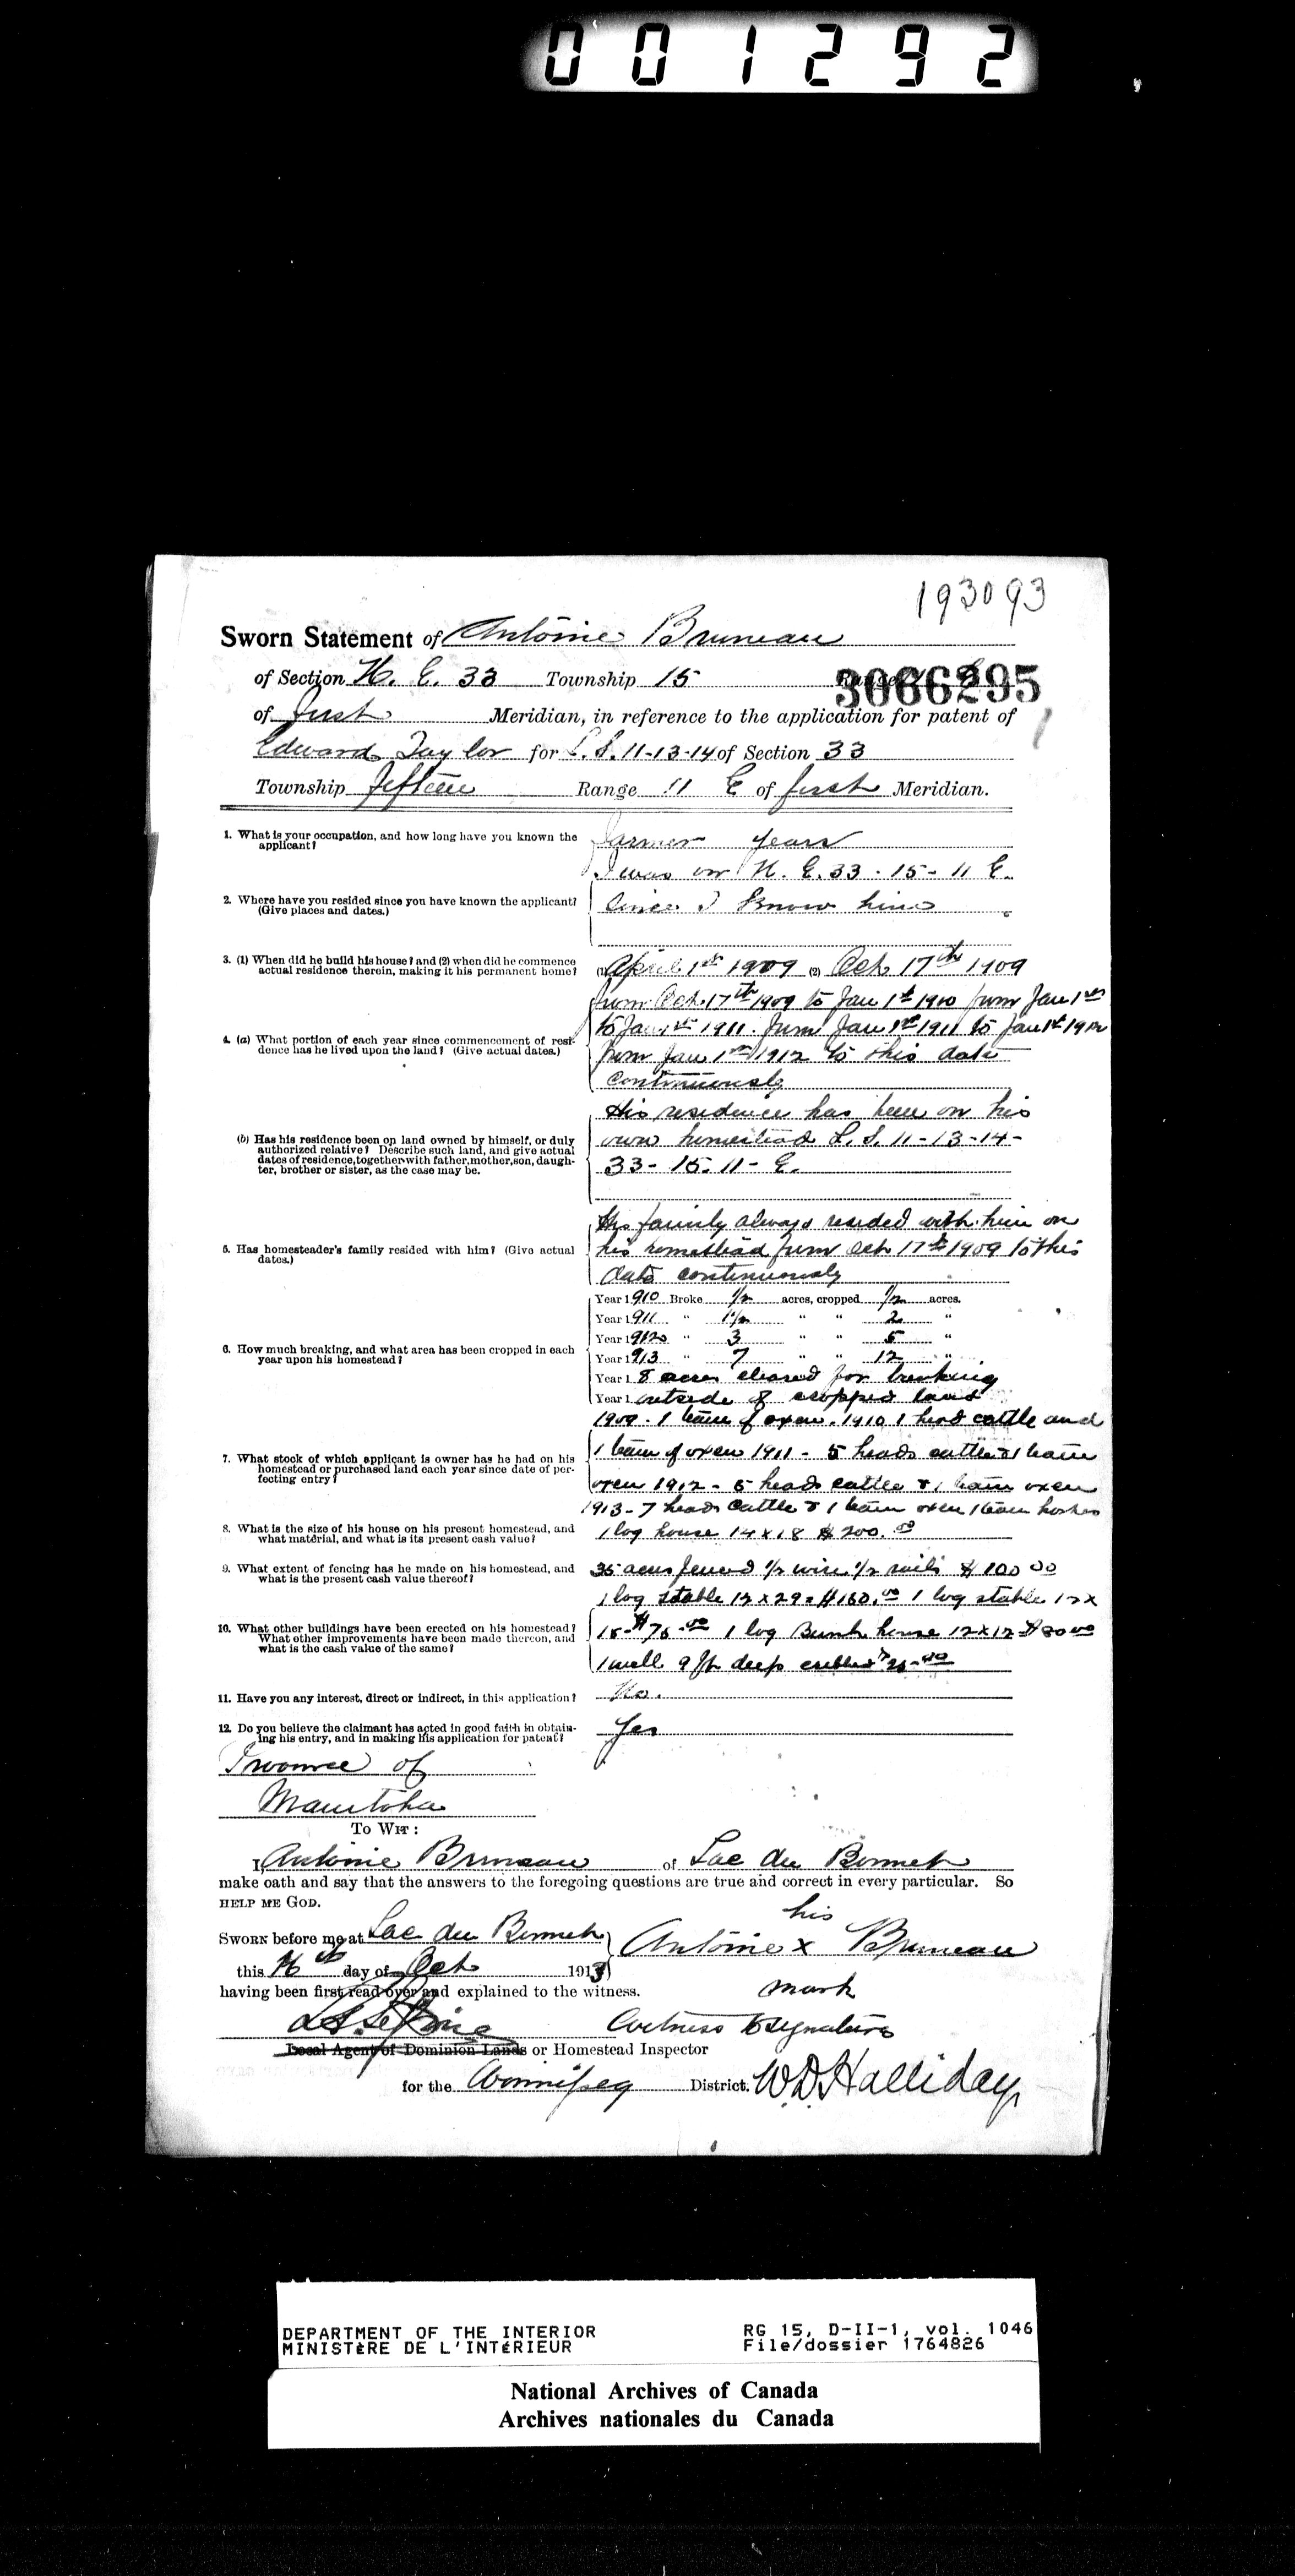 001292
193093
Sworn Statement of Antoine Bruneau
of Section N. E. 33 Township 15
3066295
of first Meridian, in reference to the application for patent of
Edward Taylor for L. S. 11-13-14 of Section 33
Township fifteen Range 11 E of first Meridian.
1. What is your occupation, and how long have you known the applicant?
farmer years
I was on N. E. 33 - 15 - 11 E.
2. Where have you resided since you have known the applicant? (Give places and dates.)
since I know him
3. (1) When did he build his house? and (2) when did he commence actual residence therein, making it his permanent home?
(1) April 1st 1909 (2) Oct 17th 1909
from Oct 17th 1909 to Jan 1st 1910 from Jan 1st
to Jan 1st 1911. from Jan 1st 1911 to Jan 1st 1912
4. (a) What portion of each year since commencement of residence has he lived upon the land? (Give actual dates.)
from Jan 1st 1912 to this date
continuously
His residence has been on his
(b) Has his residence been on land owned by himself, or duly authorized relative? Describe such land, and give actual dates of residence, together with father, mother, son, daughter, brother or sister, as the case may be.
own homestead L. S. 11-13-14-
33-15-11-E.
His family always resided with him on
5. Has homesteader's family resided with him? (Give actual dates.)
his homestead from Oct 17th 1909 to this
date continuously
Year 1910 Broke 1/2 acres, cropped 1/2 acres.
Year 1911 " 1 1/2 " " 2 "
Year 1912 " 3 " " 5 "
6. How much breaking, and what area has been cropped in each year upon his homestead?
Year 1913 " 7 " " 12 "
Year 1 8 acres cleared for breaking
Year 1 outside of cropped land
1909. 1 team of oxen. 1910 1 head cattle and
1 team of oxen 1911 - 5 heads cattle & 1 team
7. What stock of which applicant is owner has he had on his homestead or purchased land each year since date of perfecting entry?
oxen 1912 - 5 heads cattle & 1 team oxen
1913 - 7 heads cattle & 1 team oxen 1 team horses
8. What is the size of his house on his present homestead, and what material, and what is its present cash value?
1 log house 14 x 18 $ 200.00
9. What extent of fencing has he made on his homestead, and what is the present cash value thereof?
35 acres fenced 1/2 wire 1/2 rails $ 100 00
1 log stable 12 x 29 = $150.00 1 log stable 12 x
10. What other buildings have been erected on his homestead? What other improvements have been made thereon, and what is the cash value of the same?
15 - $75.00 1 log Bunk house 12 x 12
1 well 9 ft deep cribbed
11. Have you any interest, direct or indirect, in this application?
No.
12. Do you believe the claimant has acted in good faith in obtaining his entry, and in making his application for patent?
Yes
Province of
Manitoba
To Wit:
I, Antoine Bruneau of Lac du Bonnet
make oath and say that the answers to the foregoing questions are true and correct in every particular. So
help me God.
his
Sworn before me at Lac du Bonnet
Antoine x Bruneau
this 16th day of Oct 1913
mark
having been first read over and explained to the witness.
Witness to signature
Local Agent of Dominion Lands or Homestead Inspector
for the Winnipeg District.
W. D. Halliday
DEPARTMENT OF THE INTERIOR
MINISTÈRE DE L'INTÉRIEUR
RG 15, D-II-1, vol. 1046
File/dossier 1764826
National Archives of Canada
Archives nationales du Canada